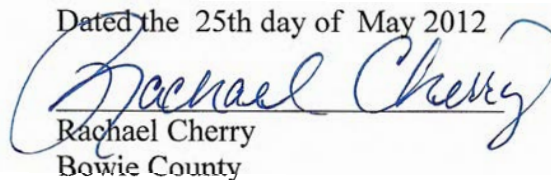 Dated the 25th day of May 2012
Rachael Cherry
Rachael Cherry
Bowie County